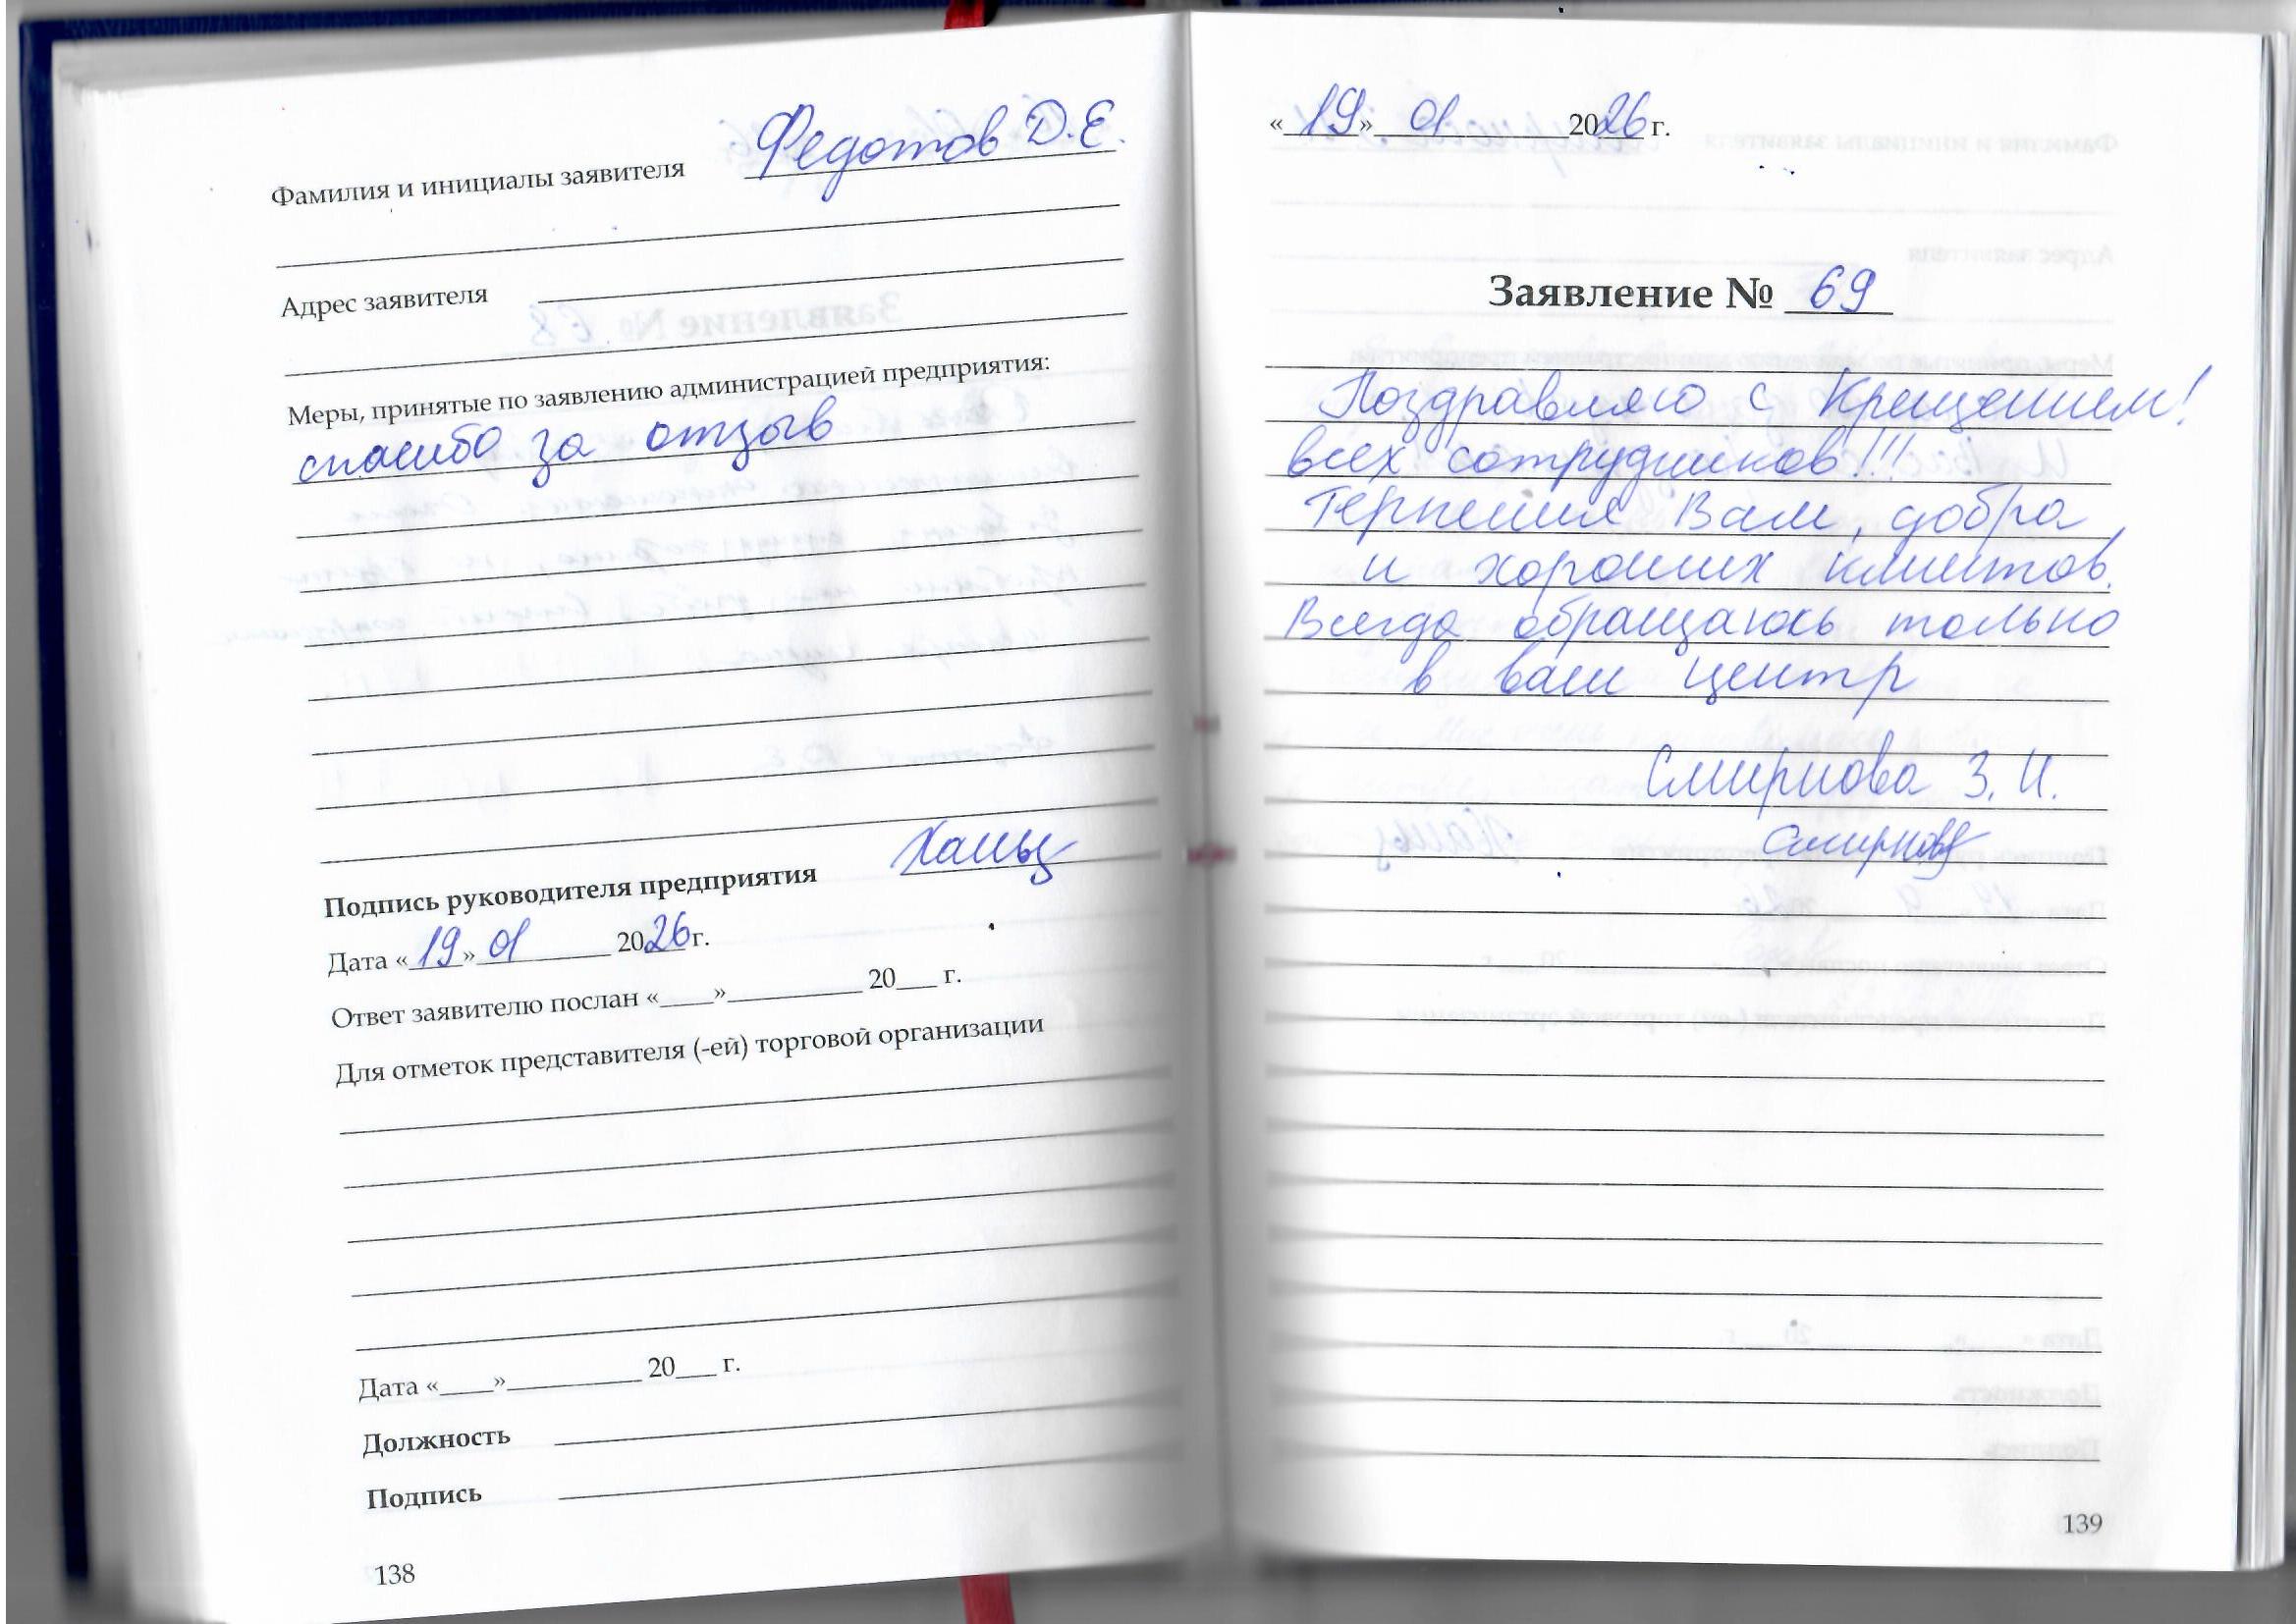 Фамилия и инициалы заявителя Федотов Д.Е.
Адрес заявителя
Меры, принятые по заявлению администрацией предприятия:
спасибо за отзыв
Подпись руководителя предприятия
Дата «19» 01 2026 г.
Ответ заявителю послан «____»__________ 20___ г.
Для отметок представителя (-ей) торговой организации
Дата «____»__________ 20___ г.
Должность
Подпись
138
«19» 01 2026 г.
Заявление № 69
Поздравляю с Крещением!
всех сотрудников!!!
Терпения Вам, добра
и хороших клиентов.
Всегда обращаюсь только
в ваш центр
Смирнова З. И.
Смирнова
139